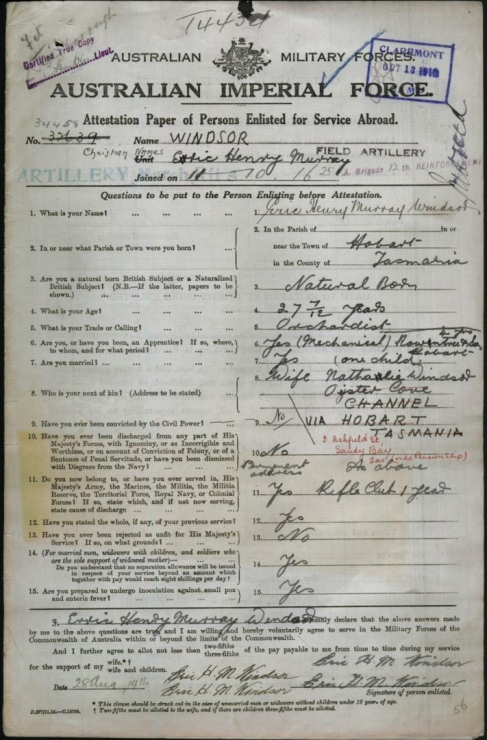 T4434
Certified True Copy
Lieut.
AUSTRALIAN MILITARY FORCES.
CLAREMONT
OCT 13 1916
AUSTRALIAN IMPERIAL FORCE.
Attestation Paper of Persons Enlisted for Service Abroad.
34458
No. 33639 Name WINDSOR
Christian Names
Unit Erric Henry Murray FIELD ARTILLERY
ARTILLERY
Joined on 11 10 16 25 A. Brigade, 12th REINFORCEMENT
Questions to be put to the Person Enlisting before Attestation.
1. What is your Name? ... 1. Eric Henry Murray Windsor
2. In or near what Parish or Town were you born? ... 2. In the Parish of in or
near the Town of Hobart
in the County of Tasmania
3. Are you a natural born British Subject or a Naturalized
British Subject? (N.B.—If the latter, papers to be
shown.) ... 3. Natural Born
4. What is your Age? ... 4. 27 7/12 years
5. What is your Trade or Calling? ... 5. Orchardist
6. Are you, or have you been, an Apprentice? If so, where,
to whom, and for what period? ... 6. Yes (Mechanical)
Hobart
7. Are you married? ... 7. Yes (one child)
8. Who is your next of kin? (Address to be stated) ... 8. Wife Nathalie Windsor
Oyster Cove
CHANNEL
VIA HOBART
TASMANIA
3 Ashfield St
Sandy Bay
9. Have you ever been convicted by the Civil Power? ... 9. No
10. Have you ever been discharged from any part of His
Majesty's Forces, with Ignominy, or as Incorrigible and
Worthless, or on account of Conviction of Felony, or of a
Sentence of Penal Servitude, or have you been dismissed
with Disgrace from the Navy? ... 10. No
Permanent address As above
11. Do you now belong to, or have you ever served in, His
Majesty's Army, the Marines, the Militia, the Militia
Reserve, the Territorial Force, Royal Navy, or Colonial
Forces? If so, state which, and if not now serving,
state cause of discharge ... 11. Yes Rifle Club 1 year
12. Have you stated the whole, if any, of your previous service? 12. Yes
13. Have you ever been rejected as unfit for His Majesty's
Service? If so, on what grounds? ... 13. No
14. (For married men, widowers with children, and soldiers who
are the sole support of widowed mother)—
Do you understand that no separation allowance will be issued
in respect of your service beyond an amount which
together with pay would reach eight shillings per day? 14. Yes
15. Are you prepared to undergo inoculation against small pox
and enteric fever? ... 15. Yes
I, Erric Henry Murray Windsor solemnly declare that the above answers made
by me to the above questions are true and I am willing and hereby voluntarily agree to serve in the Military Forces of the
Commonwealth of Australia within or beyond the limits of the Commonwealth.
And I further agree to allot not less than two-fifths three-fifths of the pay payable to me from time to time during my service
for the support of my wife.*† wife and children. Eric H. M. Windsor
Eric H. M. Windsor
Date 28 Aug 1916 Eric H. M. Windsor Eric H. M. Windsor
Signature of person enlisted.
* This clause should be struck out in the case of unmarried men or widowers without children under 18 years of age.
† Two-fifths must be allotted to the wife, and if there are children three-fifths must be allotted.
56